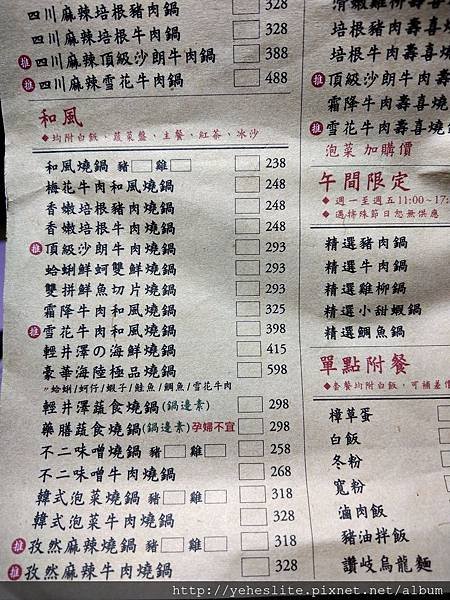 四川麻辣培根豬肉鍋 328
四川麻辣培根牛肉鍋 328
推 四川麻辣頂級沙朗牛肉鍋 388
推 四川麻辣雪花牛肉鍋 488
和風
◆均附白飯、蔬菜盤、主餐、紅茶、冰沙
和風燒鍋 豬 雞 238
梅花牛肉和風燒鍋 248
香嫩培根豬肉燒鍋 248
香嫩培根牛肉燒鍋 248
推 頂級沙朗牛肉燒鍋 293
蛤蜊鮮蚵雙鮮燒鍋 293
雙拼鮮魚切片燒鍋 293
霜降牛肉和風燒鍋 325
推 雪花牛肉和風燒鍋 398
輕井澤の海鮮燒鍋 415
豪華海陸極品燒鍋 598
蛤蜊/蚵仔/蝦子/鮭魚/鯛魚/雪花牛肉
輕井澤蔬食燒鍋(鍋邊素) 298
藥膳蔬食燒鍋(鍋邊素)孕婦不宜 298
不二味噌燒鍋 豬 雞 258
不二味噌牛肉燒鍋 268
韓式泡菜燒鍋 豬 雞 318
韓式泡菜牛肉燒鍋 328
推 孜然麻辣燒鍋 豬 雞 318
推 孜然麻辣牛肉燒鍋 328
滑嫩雞柳壽喜燒
培根豬肉壽喜燒
培根牛肉壽喜燒
推 頂級沙朗牛肉壽
霜降牛肉壽喜燒
推 雪花牛肉壽喜燒
泡菜加購價
午間限定
◆ 週一至週五11:00~17:
◆ 遇特殊節日恕無供應
精選豬肉鍋
精選牛肉鍋
精選雞柳鍋
精選小甜蝦鍋
精選鯛魚鍋
單點附餐
◆套餐均附白飯，可補差價
樟草蛋
白飯
冬粉
寬粉
滷肉飯
豬油拌飯
讚岐烏龍麵
http://yeheslite.pixnet.net/album